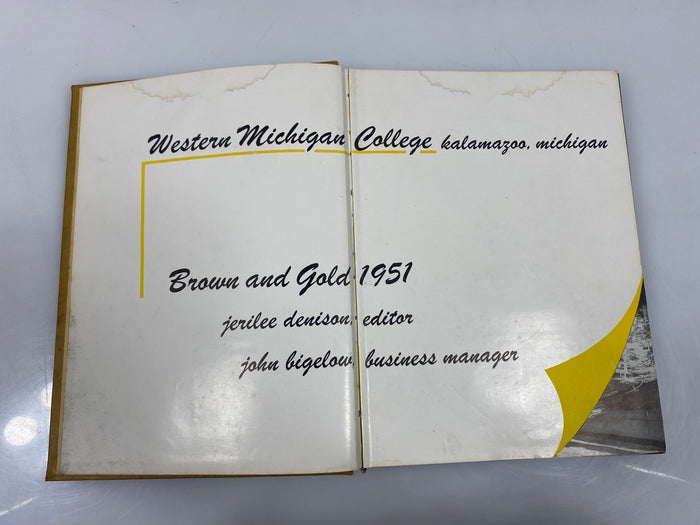 Western Michigan College kalamazoo, michigan
Brown and Gold 1951
jerilee denison, editor
john bigelow, business manager